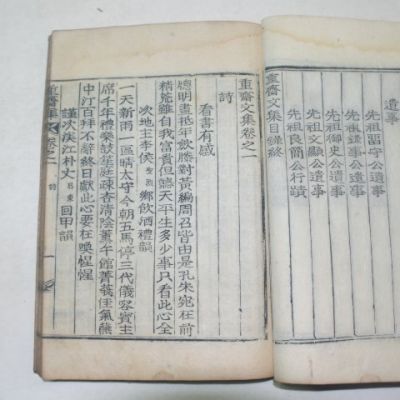 遺事
先祖習守公遺事
先祖錄事公遺事
先祖御史公遺事
先祖文顯公遺事
先祖良簡公行蹟
重齋文集目錄終
重齋文集卷之一
詩
看書有感
聰明晝抵年飮勝對黃編周召皆由是孔朱宛在前
精荒雖自我富貴但聽天平生多少事只看此心全
次地主李侯鄉飮酒禮韻
一天新雨一區晴太守今朝五馬停三代儀容賓主
席千年禮樂鼓笙庭疎香淸陰薰午館菁莪佳氣藹
中汀百拜不辭終日獻此心要在喚惺惺
謹次漢江朴丈回甲韻
重齋集 卷之一 詩 一